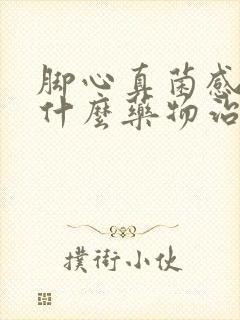 脚心真菌感
什麼藥物治
撲街小伙